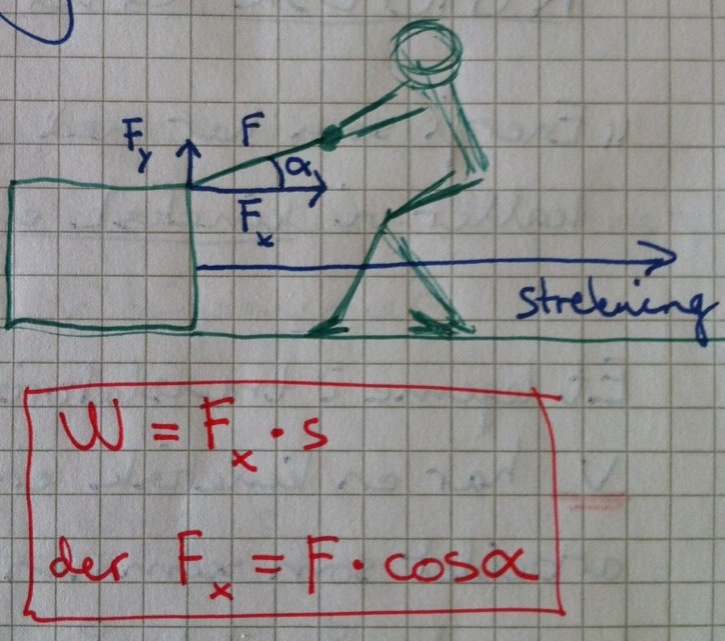 F_y F α
F_x
strekning
W = F_x · s
der F_x = F · cos α